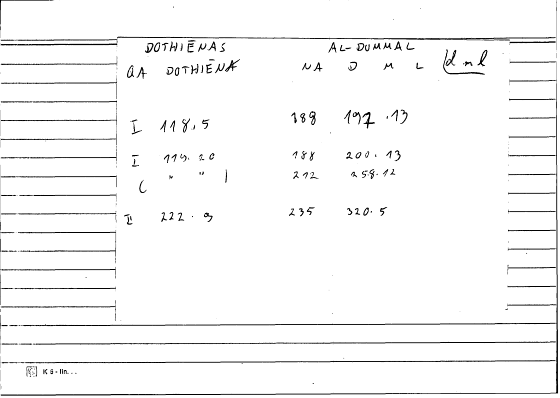 DOTHIĒNAS AL-DUMMAL
GA DOTHIĒNA NA D M L dml
I 118,5 188 197.13
I 119.20 188 200.13
( " " ) 212 258.12
II 222.9 235 320.5
K 5 - lin...